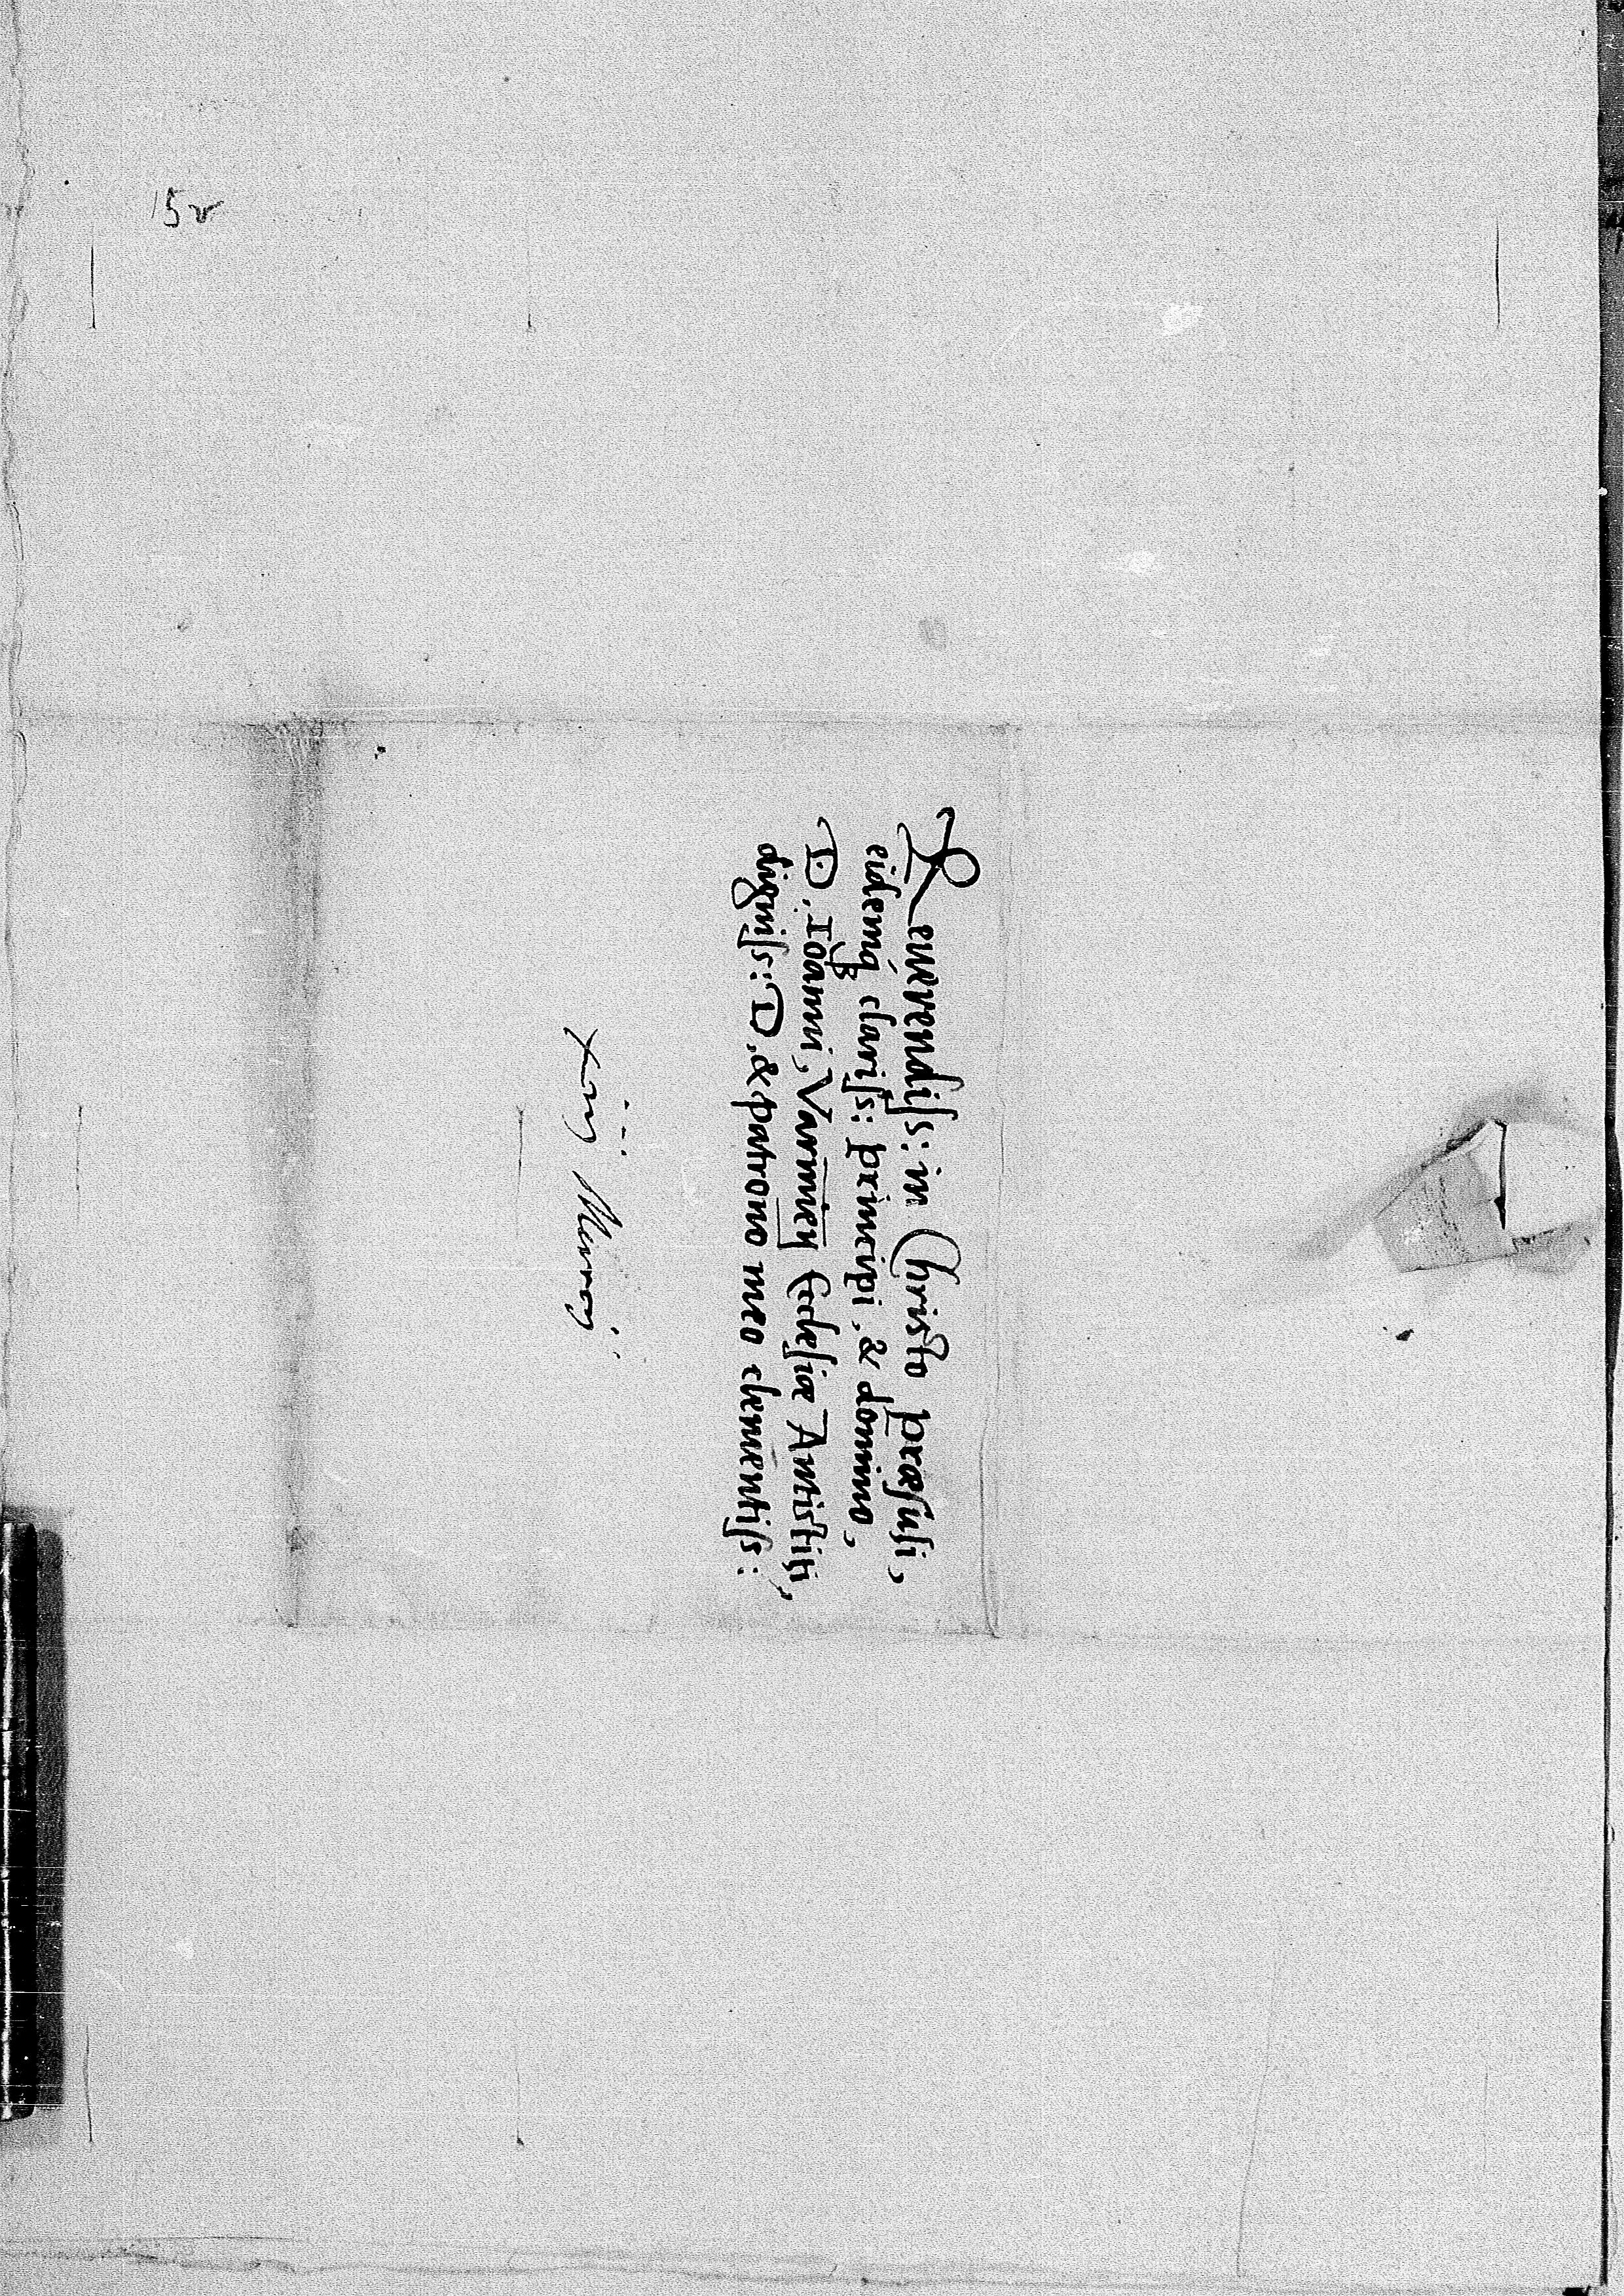 15v
Reuerendiſs: in Christo præſuli,
eidemq́ꝫ clariſs: principi, & domino,
D. Ioanni, Varmień Eccleſiæ Antiſtiti,
digniſs: D. & patrono meo clementiſs: